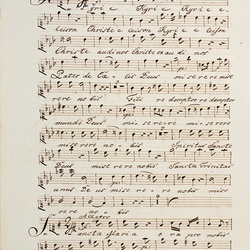 Kyrie Kyrie Kyrie e
leison Christe eleison Kyrie eleison
Christe audinos Christe exaudi nos
Pater de Cælis Deus miserere mise
rere nobis Fili redemptor redemptor
mundi Deus miserere miserere
miserere nobis Spiritus Sancte
Deus miserere nobis Sancta Trinitas
unus Deus miserere nobis mise
rere nobis
Allegro
Sancta Maria ora pro nobis